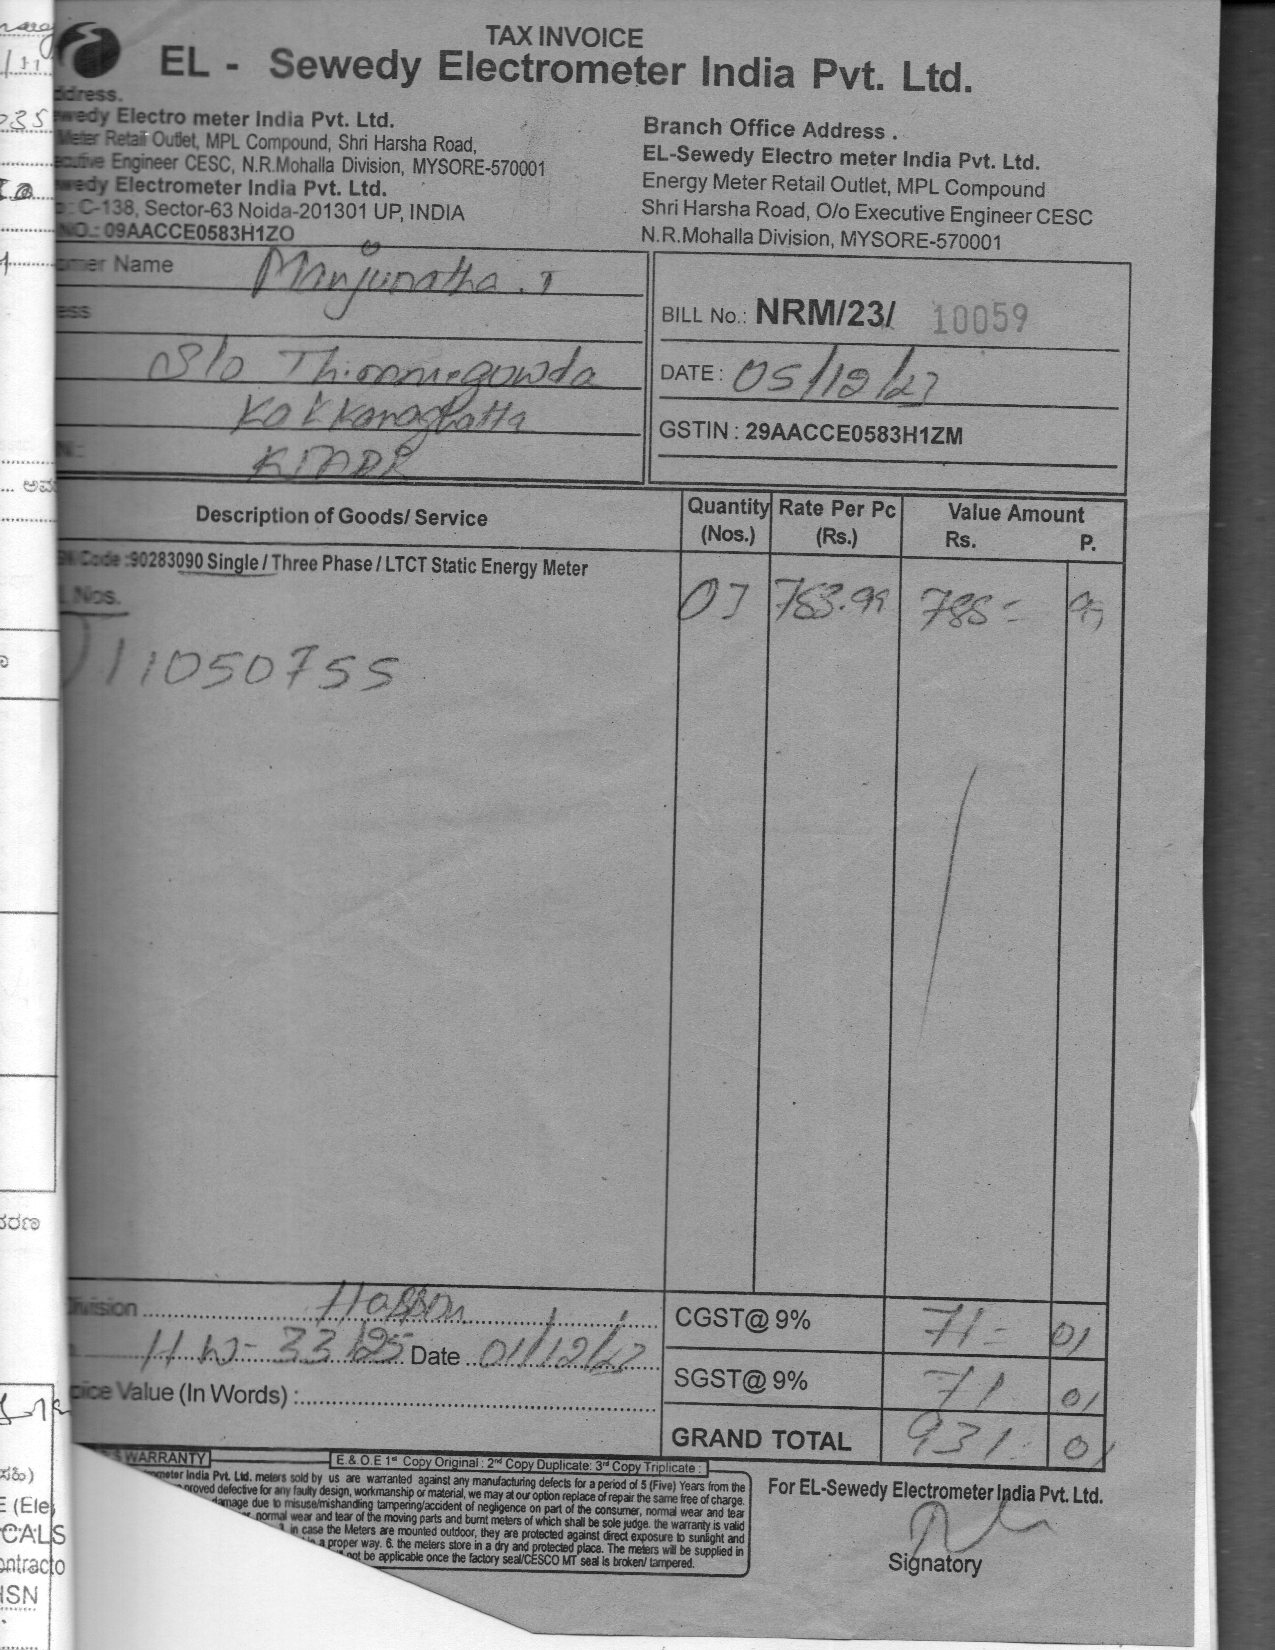 TAX INVOICE
EL - Sewedy Electrometer India Pvt. Ltd.
ddress.
wedy Electro meter India Pvt. Ltd.
Meter Retail Outlet, MPL Compound, Shri Harsha Road,
cutive Engineer CESC, N.R.Mohalla Division, MYSORE-570001
wedy Electrometer India Pvt. Ltd.
C-138, Sector-63 Noida-201301 UP, INDIA
NO.: 09AACCE0583H1ZO
Branch Office Address .
EL-Sewedy Electro meter India Pvt. Ltd.
Energy Meter Retail Outlet, MPL Compound
Shri Harsha Road, O/o Executive Engineer CESC
N.R.Mohalla Division, MYSORE-570001
omer Name Manjunatha . T
ess
S/o Thimmegowda
BILL No.: NRM/23/ 10059
DATE : 05/12/23
GSTIN : 29AACCE0583H1ZM
Description of Goods/ Service
Quantity (Nos.)
Rate Per Pc (Rs.)
Value Amount
Rs. P.
Code :90283090 Single / Three Phase / LTCT Static Energy Meter
Nos.
11050755
01
ivision Hassan
Date 01/12/23
oice Value (In Words) :
CGST@ 9% 71 = 01
SGST@ 9% 71 01
GRAND TOTAL 931 01
WARRANTY
E. & O.E 1st Copy Original : 2nd Copy Duplicate: 3rd Copy Triplicate :
ometer India Pvt. Ltd. meters sold by us are warranted against any manufacturing defects for a period of 5 (Five) Years from the
proved defective for any faulty design, workmanship or material, we may at our option replace of repair the same free of charge.
damage due to misuse/mishandling tampering/accident of negligence on part of the consumer, normal wear and tear
normal wear and tear of the moving parts and burnt meters of which shall be sole judge. the warranty is valid
in case the Meters are mounted outdoor, they are protected against direct exposure to sunlight and
a proper way. 6. the meters store in a dry and protected place. The meters will be supplied in
not be applicable once the factory seal/CESCO MT seal is broken/ tampered.
For EL-Sewedy Electrometer India Pvt. Ltd.
Signatory